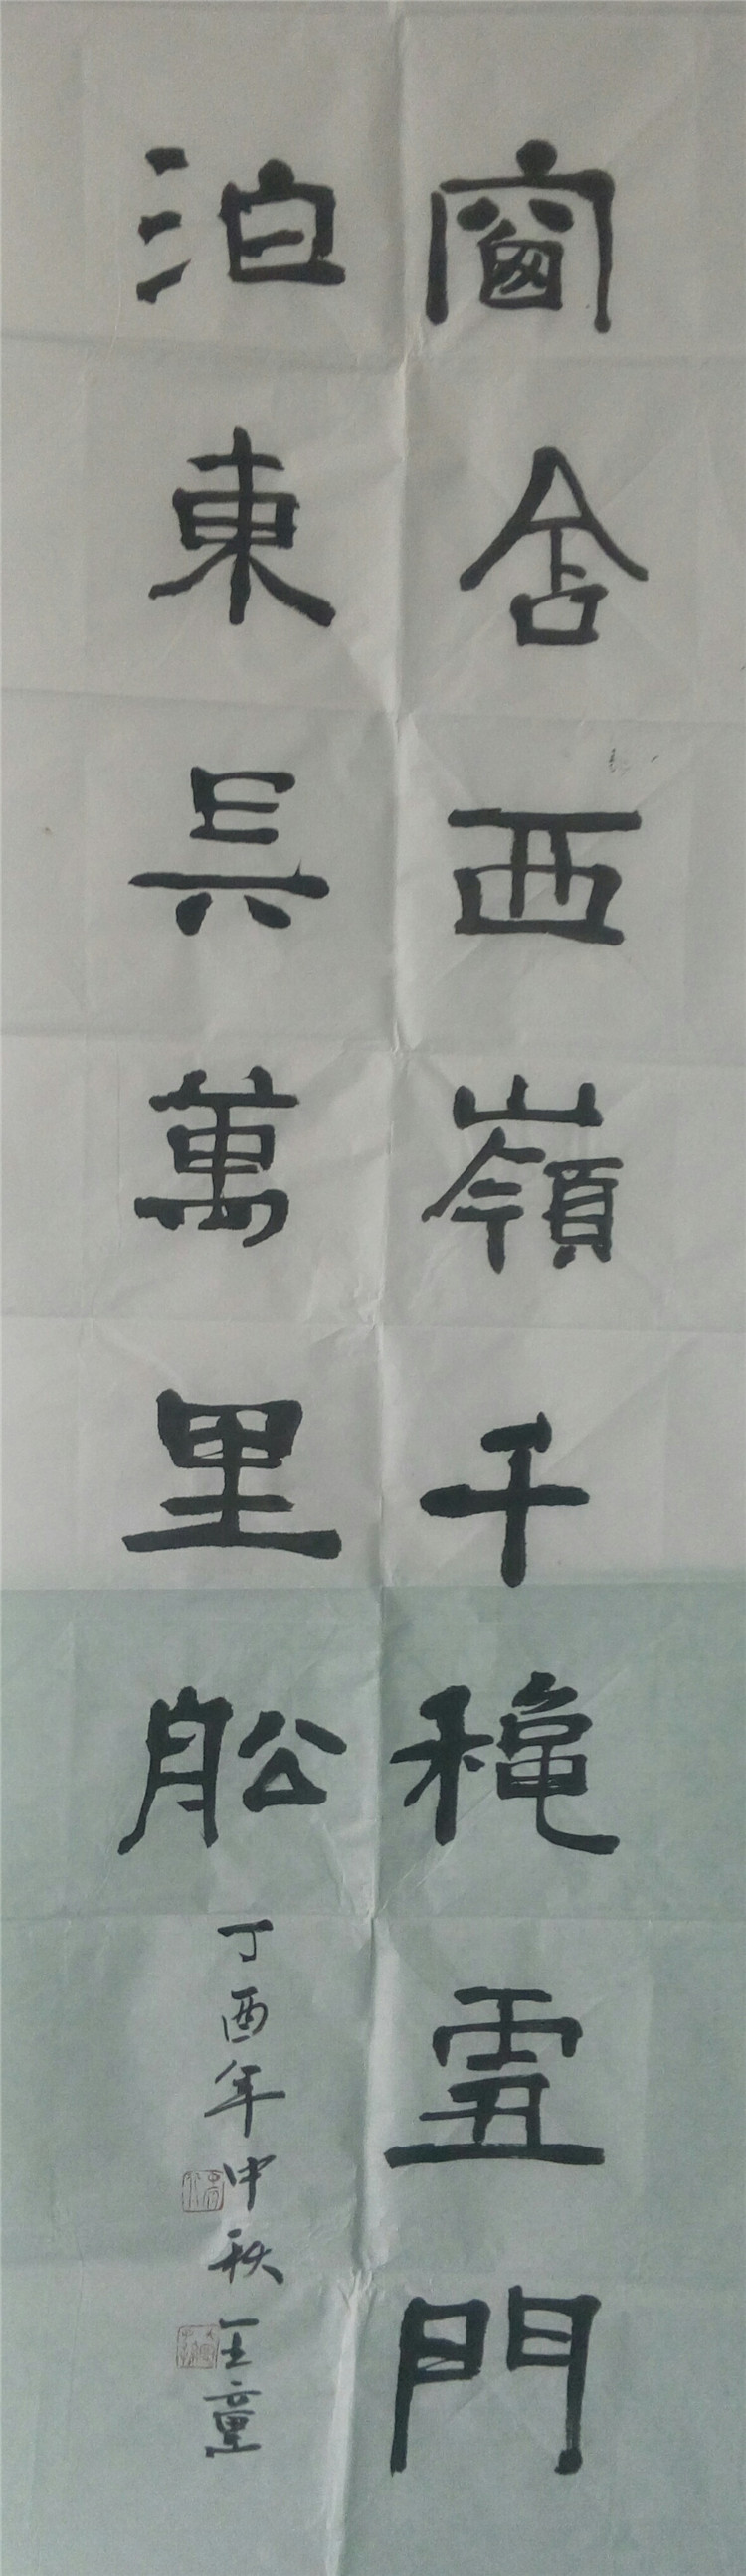 窗含西嶺千穐雪門
泊東吴萬里舩
丁酉年中秋王童